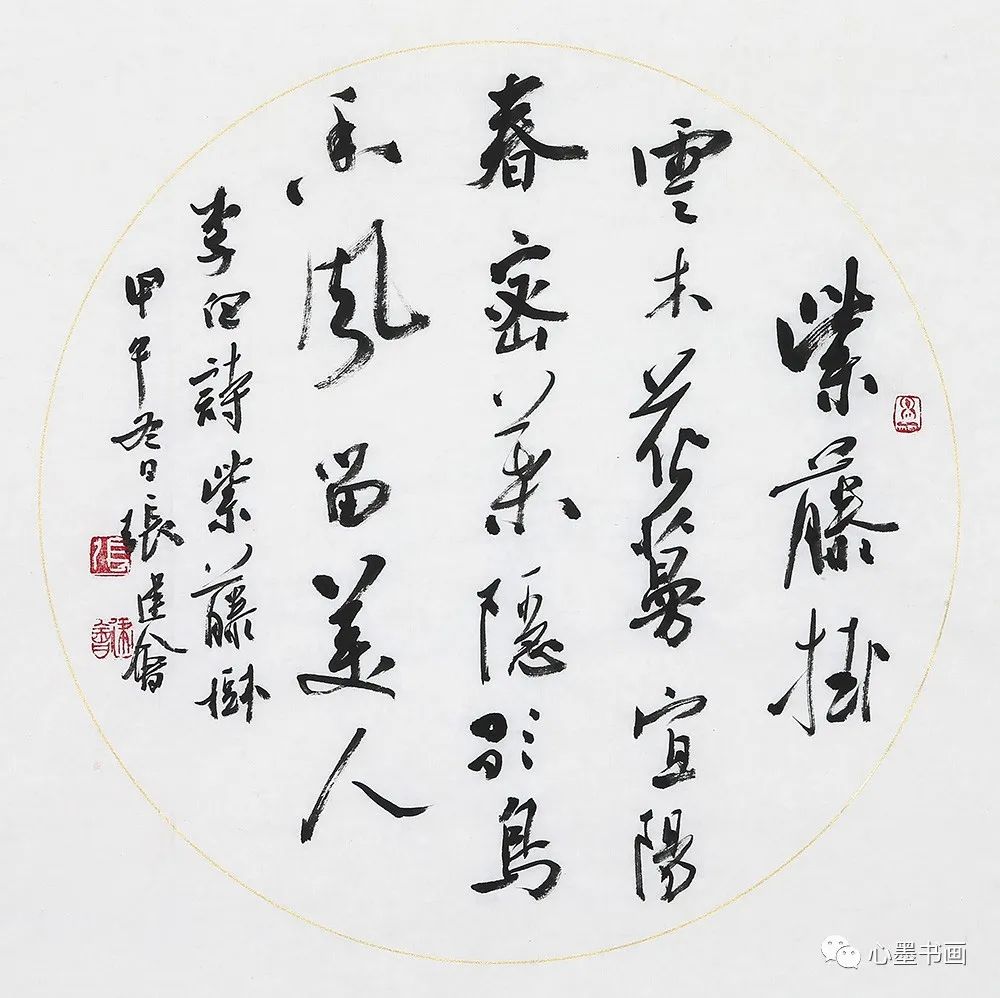 紫藤掛
雲木花蔓宜陽
春密葉隱歌鳥
香風留美人
李白詩紫藤樹
甲午冬日張建會
心墨书画